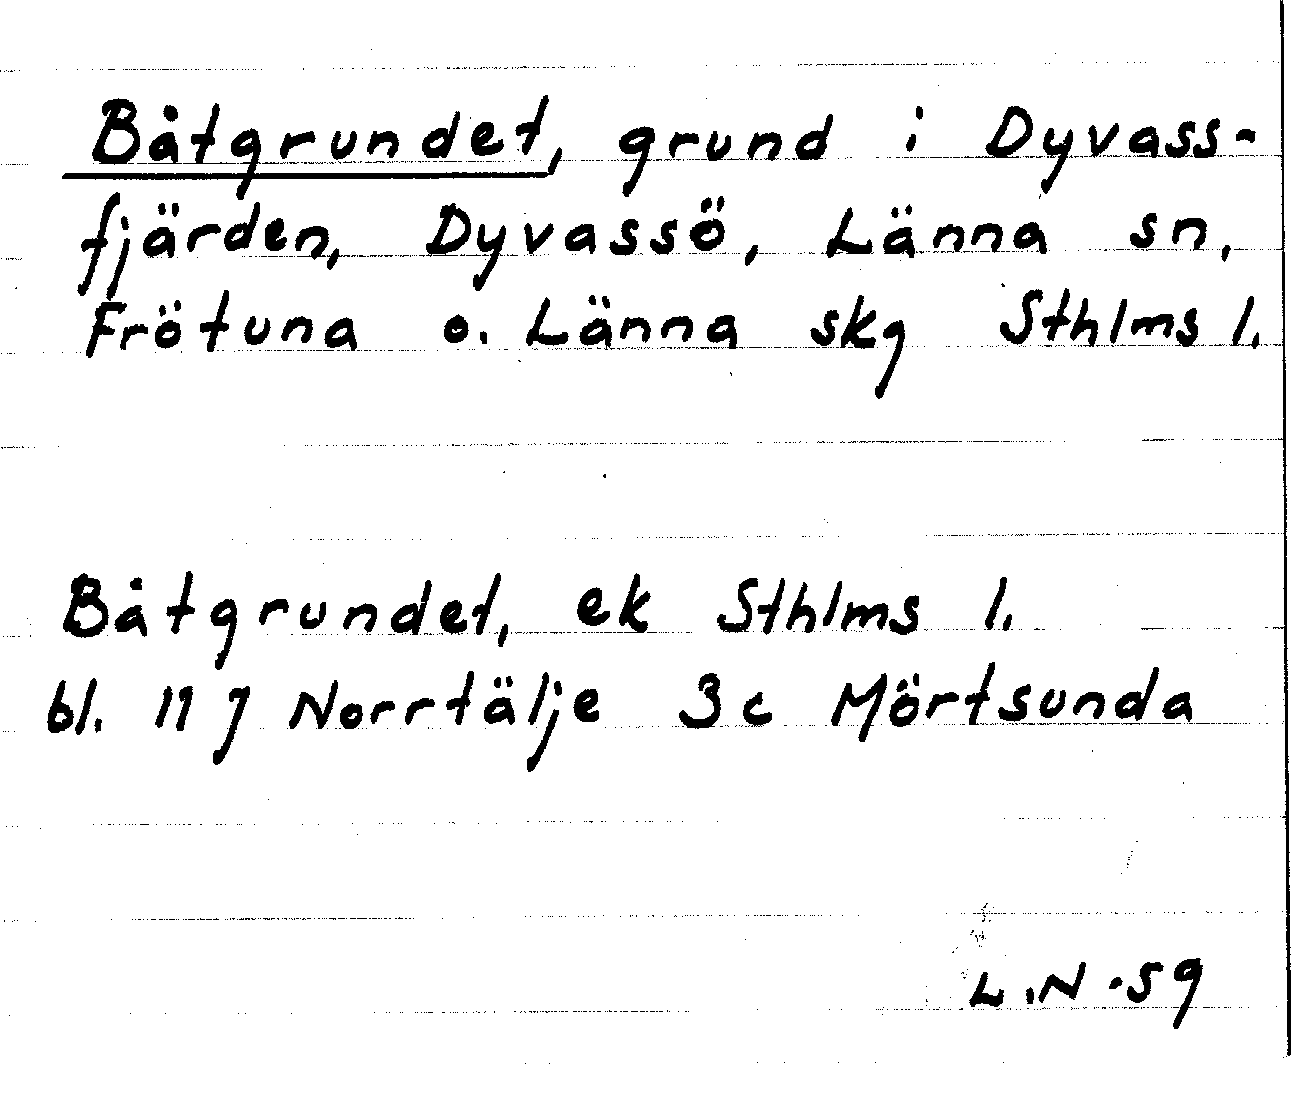 Båtgrundet, grund i Dyvass-
fjärden, Dyvassö, Länna sn,
Frötuna o. Länna skg Sthlms l.
Båtgrundet, ek Sthlms l.
bl. 11 J Norrtälje 3c Mörtsunda
L.N -59